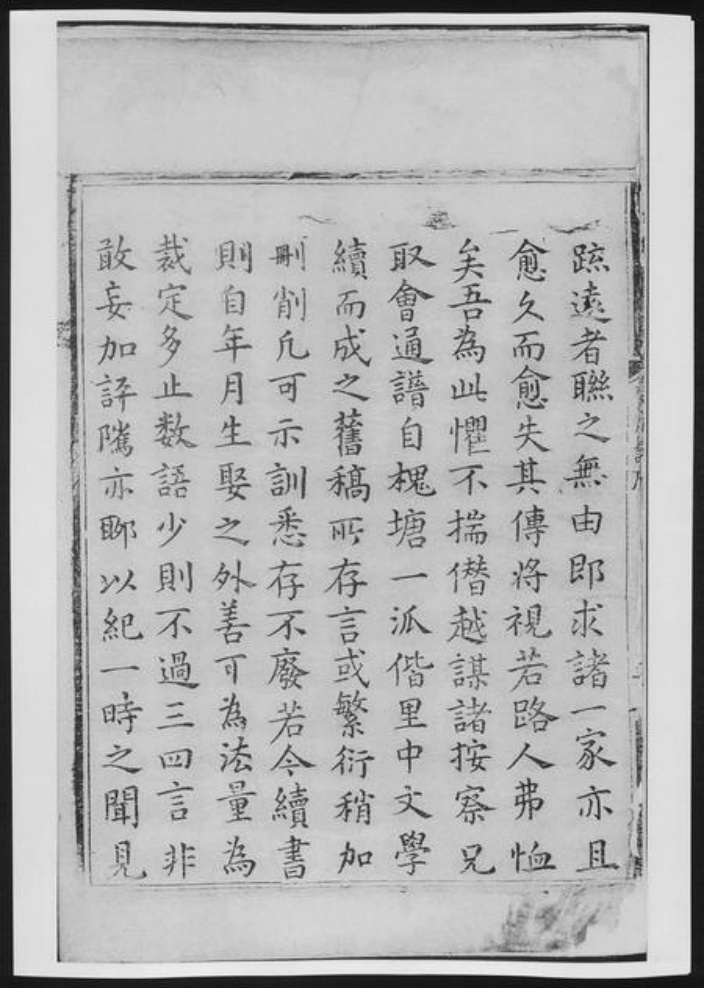 䟽遠者聯之無由即求諸一家亦且
愈久而愈失其傳將視若路人弗恤
矣吾為此懼不揣僭越謀諸按察兄
取會通譜自槐塘一派偕里中文學
續而成之舊稿所存言或繁衍稍加
刪削凢可示訓悉存不廢若今續書
則自年月生娶之外善可為法量為
裁定多止数語少則不過三四言非
敢妄加評隲亦聊以紀一時之聞見